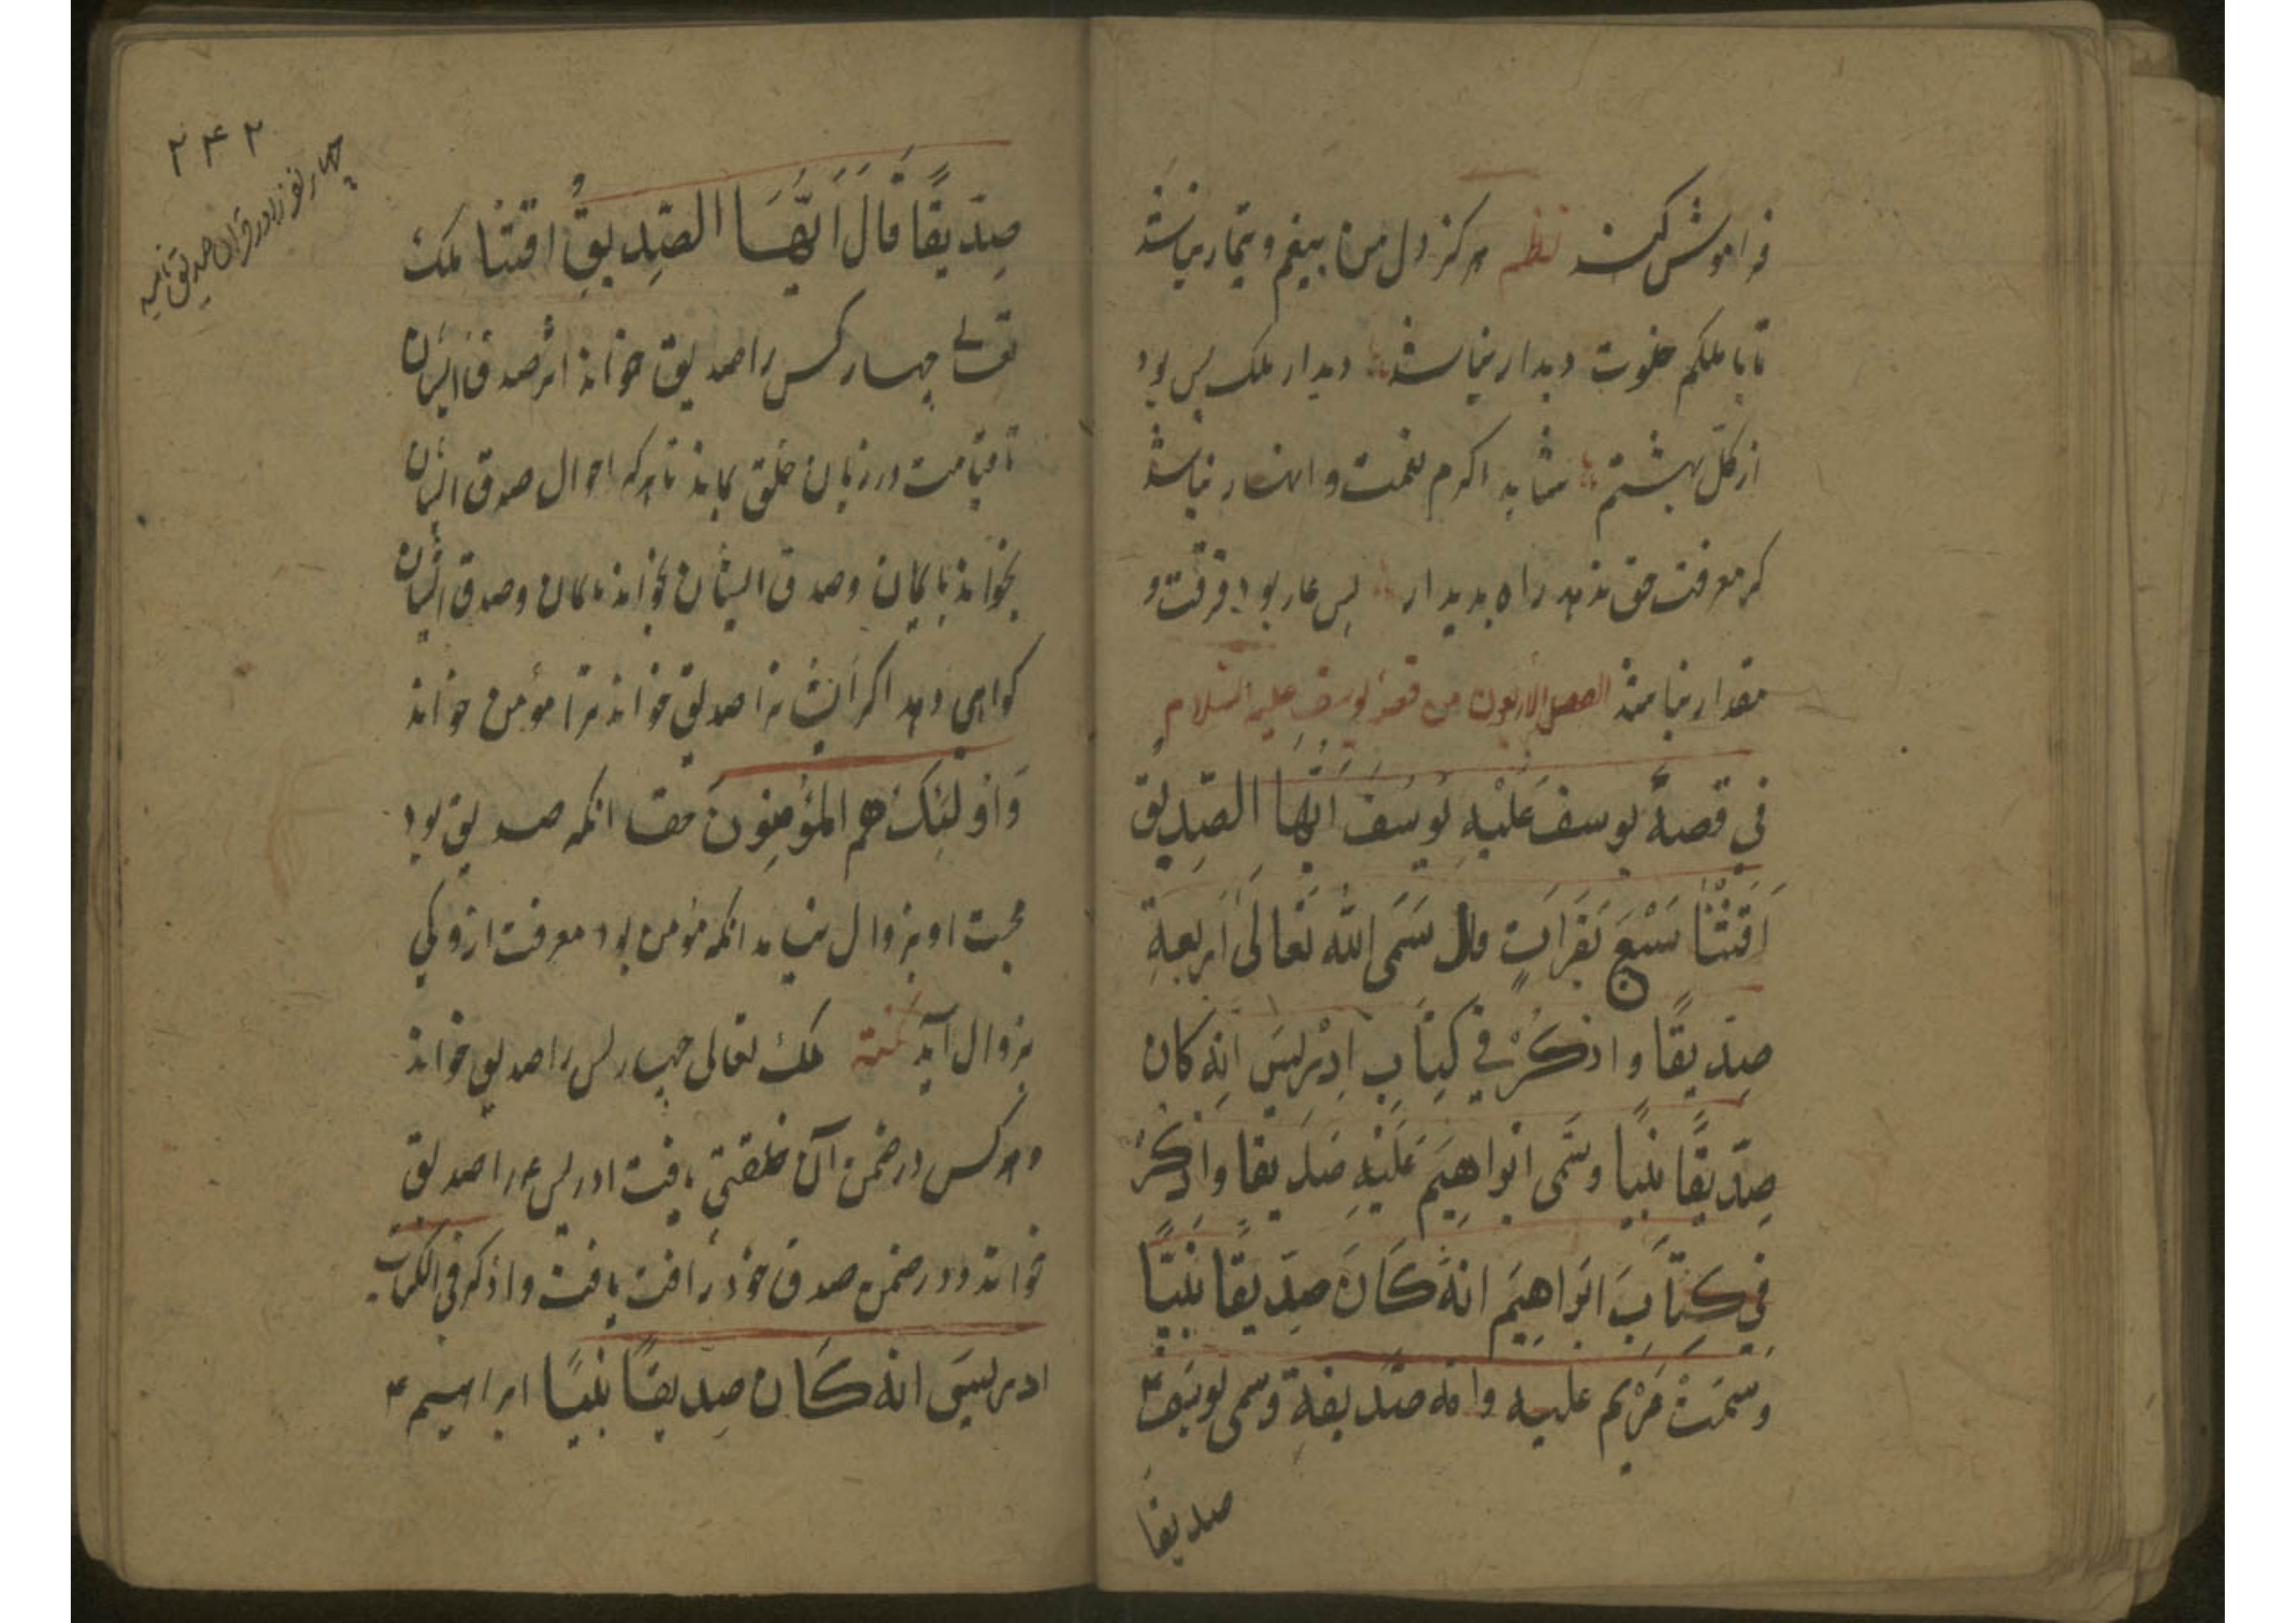 فراموش کند نظم هرگز دل من بیغم و تیمار نباشد
تا با ملکم خلوت دیدار نباشد دیدار ملک بس بود
از کل بهشتم شاید اکرم نعمت و انهار نباشد
کر معرفت حق ندهد راه بدیدار بس عار بود فرقت و
مقدار نباشد الفصل الاربعون من قصۀ یوسف علیه السلام
في قصة یوسف عَلَیْهِ یُوسُفُ اَیُّهَا الصِّدِیقُ
اَفْتِنَا سَبْعِ بَقَرَاتٍ قال سَمَی اللّٰه تَعَالَی اَرْبَعَةِ
صِدِّیقًا و اذکُرْ فِی کِتَابِ اِدْرِیسَ اِنَّه کان
صِدِّیقًا نَبِیًا وسَمَّی ابْوَاهِیَمَ عَلَیْهِ صِدِّیقا وَاذْکُرْ
فِی کِتَابَ ابْرَاهِیَم انهُ کَانَ صِدِّیقًا نَبِیًّا
وَسَمَتْ مَرْیَم علیه وامه صِدِّیقة وَسمی یوسَفَ
صدیقا
۲۴۲
چهار نفر را در قرآن صدیق نامیه
صِدِّیقًا قَالَ اَیُّهَا الصِّدِیقُ افتنا ملک
تعالی چهار کس را صدیق خواند اثر صدق ایشان
تا قیامت در زبان خلق بماند تا هرکه احوال صدق ایشان
بخواند با یمان و صدق ایشان بخواند بامان و صدق ایشان
کواهی دهد اکر ایشان را صدیق خواند ترا مؤمن خواند
وَاُولَئِکَ هم المؤمِنُونَ حقا انکه صدیق بود
محبت او بزوال نیاید انکه مؤمن بود معرفت از وکی
بزوال آید نکته ملک تعالی چهار کس را صدیق خواند
و هرکس در ضمن آن خلعتی یافت ادریس ع را صدیق
خواند و در ضمن صدق خود رافت یافت و اذکر فی الکتاب
ادریسَ انه کَانَ صِدیقًا نَبِیًا ابراهیم ع